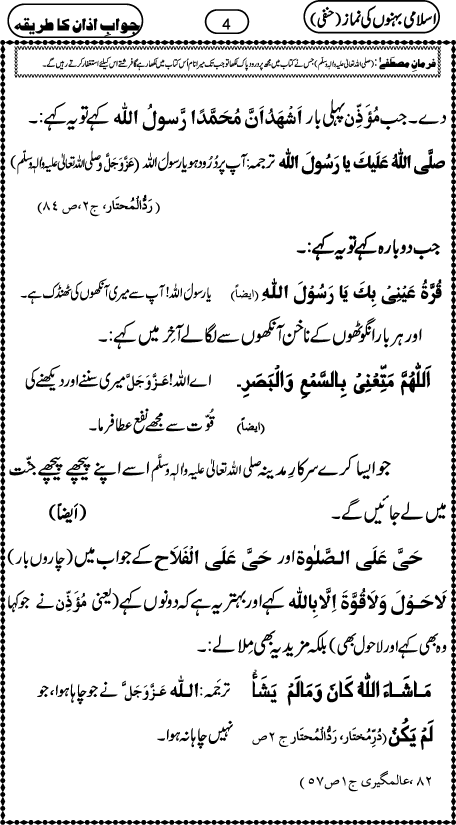 اسلامی بہنوں کی نماز (حنفی)
4
جوابِ اذان کا طریقہ
فرمانِ مصطَفٰے: (صلی اللہ تعالیٰ علیہ والہٖ وسلّم) جس نے کتاب میں مجھ پر درود پاک لکھا تو جب تک میرا نام اُس کتاب میں لکھا رہے گا فرشتے اس کیلئے استغفار کرتے رہیں گے۔
دے۔ جب مُؤَذِّن پہلی بار اَشْھَدُ اَنَّ مُحَمَّدًا رَّسولُ اللہ کہے تو یہ کہے:۔
صلَّی اللہُ عَلَیكَ یا رَسُولَ اللہ ترجمہ: آپ پر دُرُود ہو یا رسولَ اللہ (عَزَّوَجَلَّ و صلی اللہ تعالیٰ علیہ والہٖ وسلّم)
(رَدُّالْمُحتَار، ج۲، ص ۸۴)
جب دوبارہ کہے تو یہ کہے:۔
قُرَّةُ عَیْنِیْ بِكَ یَا رَسُوْلَ اللہِ (ایضاً) یا رسولَ اللہ! آپ سے میری آنکھوں کی ٹھنڈک ہے۔
اور ہر بار انگوٹھوں کے ناخن آنکھوں سے لگا لے آخِر میں کہے:۔
اَللّٰھُمَّ مَتِّعْنِیْ بِالسَّمْعِ وَالْبَصَرِ۔ اے اللہ! عَزَّوَجَلَّ میری سننے اور دیکھنے کی
(ایضاً) قُوّت سے مجھے نفع عطا فرما۔
جو ایسا کرے سرکارِ مدینہ صلی اللہ تعالیٰ علیہ والہٖ وسلَّم اسے اپنے پیچھے پیچھے جنّت
میں لے جائیں گے۔ (اَیضاً)
حَیَّ عَلَی الصَّلٰوة اور حَیَّ عَلَی الْفَلَاح کے جواب میں (چاروں بار)
لَاحَوْلَ وَلَا قُوَّةَ اِلَّا بِاللہ کہے اور بہتر یہ ہے کہ دونوں کہے (یعنی مُؤَذِّن نے جو کہا
وہ بھی کہے اور لاحول بھی) بلکہ مزید یہ بھی مِلا لے:۔
مَاشَاءَ اللہُ کَانَ وَمَا لَمْ یَشَأْ ترجَمہ: اللہ عَزَّوَجَلَّ نے جو چاہا ہوا، جو
لَمْ یَکُنْ (دُرِّمُختار، رَدُّالْمُحتَار ج ۲ ص نہیں چاہا نہ ہوا۔
۸۲، عالمگیری ج ۱ ص ۵۷)